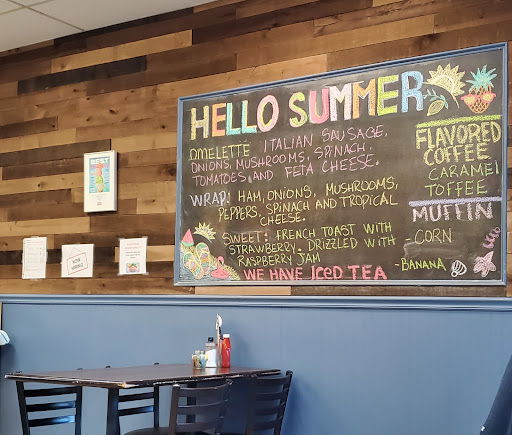 HELLO SUMMER
OMELETTE ITALIAN SAUSAGE,
ONIONS, MUSHROOMS, SPINACH,
TOMATOES AND FETA CHEESE.
WRAP: HAM, ONIONS, MUSHROOMS,
PEPPERS, SPINACH AND TROPICAL
CHEESE.
SWEET: FRENCH TOAST WITH
STRAWBERRY. DRIZZLED WITH
RASPBERRY JAM
WE HAVE ICED TEA
FLAVORED
COFFEE
CARAMEL
TOFFEE
MUFFIN
CORN
-BANANA
BEST
NOW
HIRING